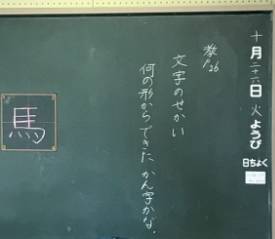 十月二十六日 火ようび
日ちょく
文字のせかい
何の形からできたかん字かな。
馬